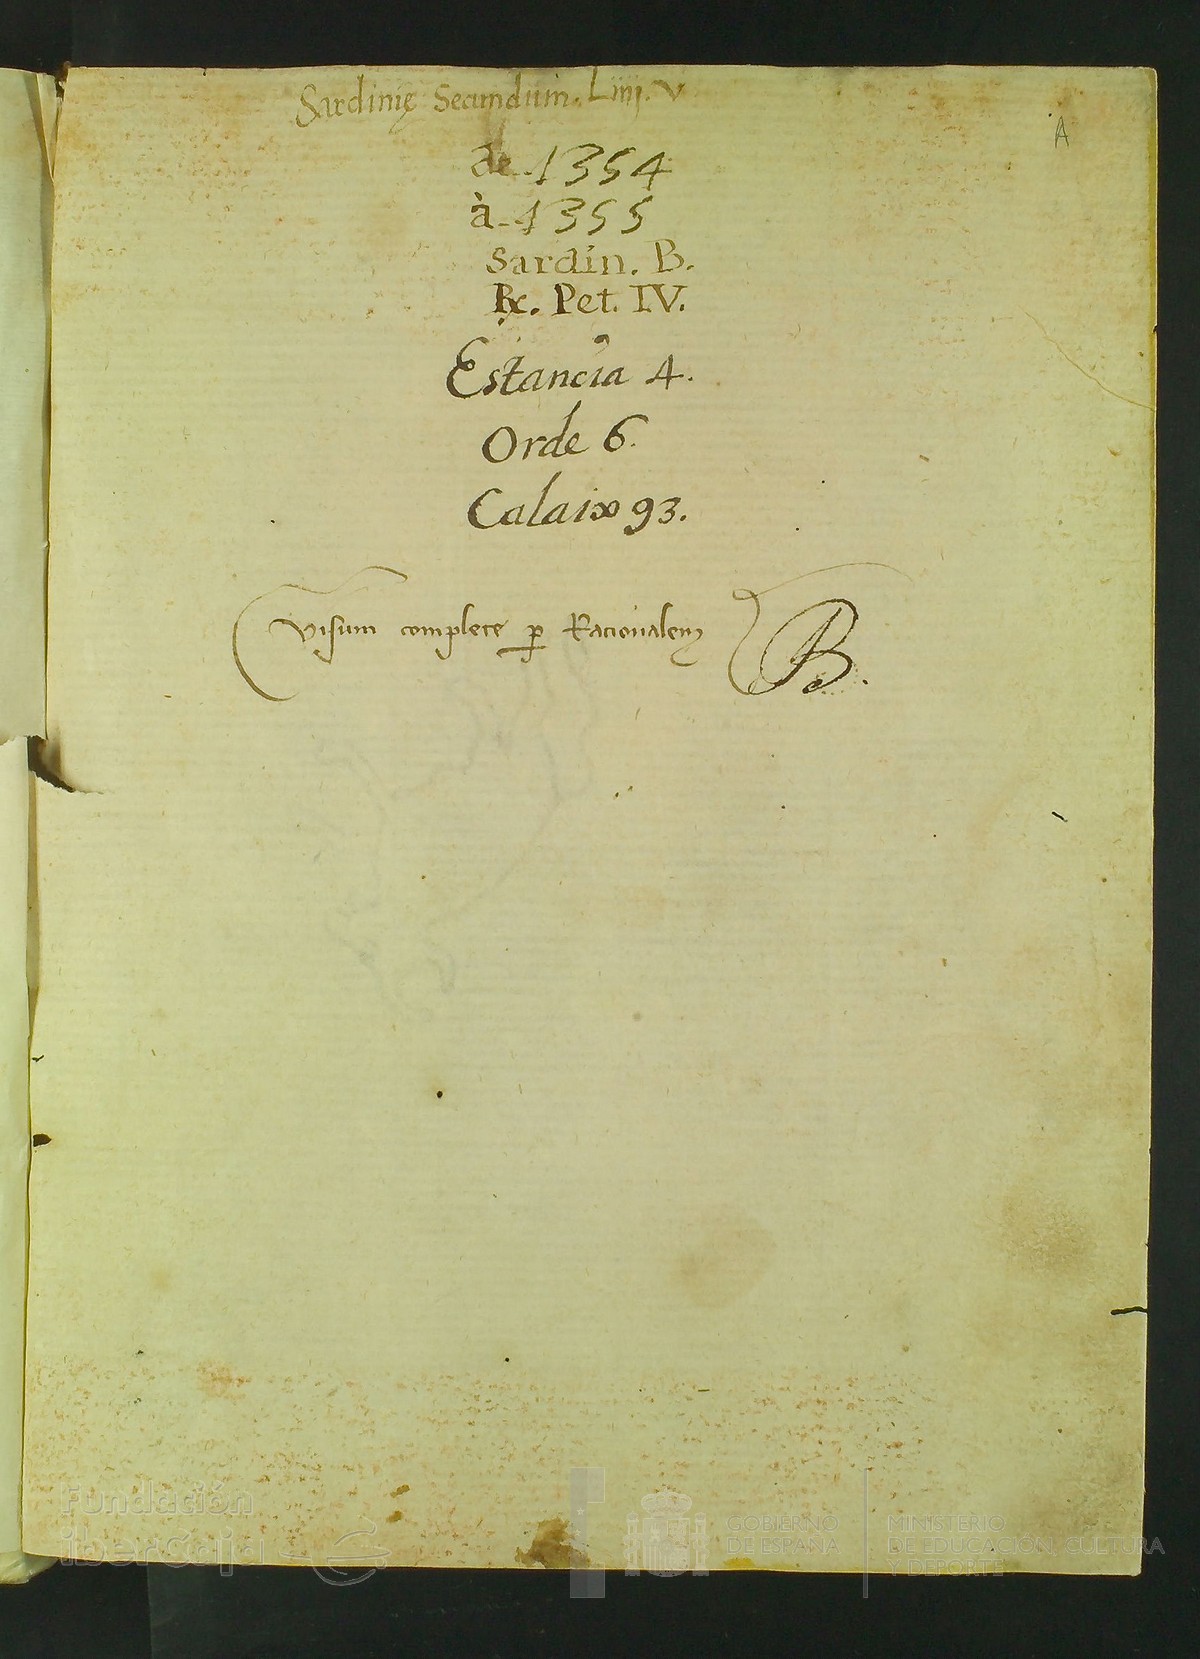 Sardinię Secundum. Liiij. v
A
de - 1354
à - 1355
Sardin. B.
Rx. Pet. IV.
Estancia 4.
Orde 6.
Calaix 93.
Visum complete p Racionalem B.
Fundación
iberCaja
GOBIERNO
DE ESPAÑA
MINISTERIO
DE EDUCACIÓN, CULTURA
Y DEPORTE